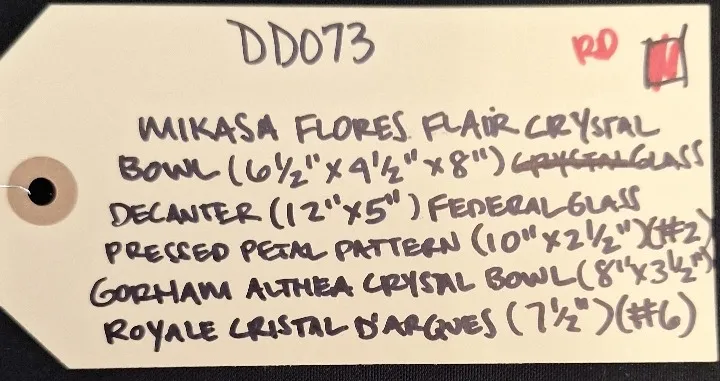 DD073 RD
MIKASA FLORES FLAIR CRYSTAL
BOWL (6 1/2" X 4 1/2" X 8") CRYSTAL GLASS
DECANTER (12" X 5") FEDERAL GLASS
PRESSED PETAL PATTERN (10" X 2 1/2") (#2)
GORHAM ALTHEA CRYSTAL BOWL (8" X 3 1/2")
ROYALE CRISTAL D'ARQUES (7 1/2") (#6)